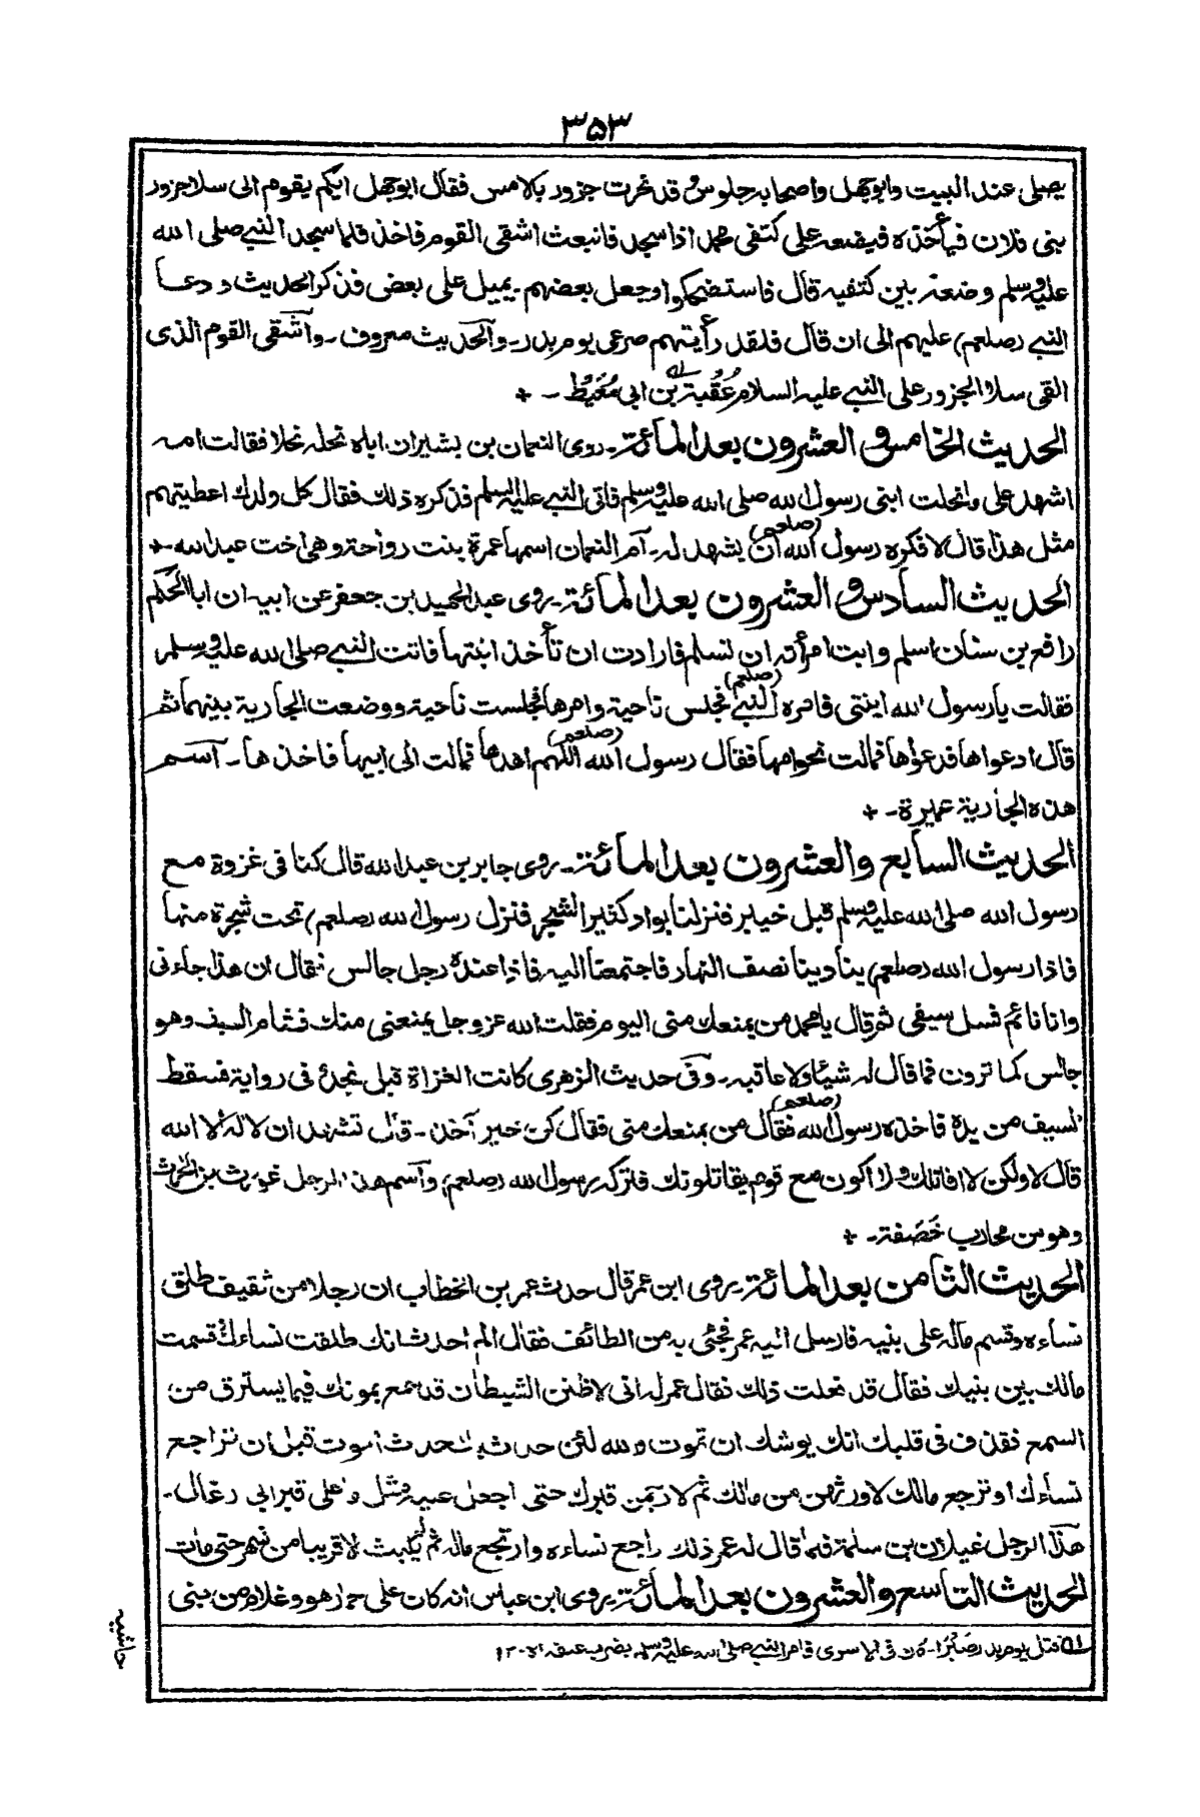 ۳۵۳
يصلى عند البيت وابوجهل واصحابه جلوس قد نحرت جزور بالامس فقال ابوجهل ايكم يقوم الى سلا جزور
بنى فلان فيأخذه فيضعه على كتفى محمد اذا سجد فانبعث اشقى القوم فاخذ فلما سجد النبي صلى الله
عليه وسلم وضعه بين كتفيه قال فاستضحكوا وجعل بعضهم يميل على بعض فذكر الحديث ودعا
النبي (صلعم) عليهم الى ان قال فلقد رأيتهم صرعى يوم بدر۔ والحديث معروف۔ واشقى القوم الذى
القى سلا الجزور على النبي عليه السلام عُقْبَة بن ابى مُعَيْط ۔ +
الحديث الخامس والعشرون بعد المائة۔ روى النعمان بن بشير ان اباه نحله نحلا فقالت امه
اشهد على ما نحلت ابنى رسول الله صلى الله عليه وسلم فاتى النبي عليه السلم فذكره ذلك فقال كل ولدك اعطيتهم
مثل هذا قال لا فكره رسول الله (صلعم) ان يشهد له۔ ام النعمان اسمها عمرة بنت رواحة وهى اخت عبد الله۔+
الحديث السادس والعشرون بعد المائة۔ روى عبد الحميد بن جعفر عن ابيه ان ابا الحكم
رافع بن سنان اسلم وابت امرأته ان تسلم فارادت ان تأخذ ابنتها فاتت النبي صلى الله عليه وسلم
فقالت يا رسول الله ابنتى فامره النبي (صلعم) فجلس ناحية وامرها فجلست ناحية ووضعت الجارية بينهما ثم
قال ادعواها فدعواها فمالت نحو امها فقال رسول الله (صلعم) اللهم اهدها فمالت الى ابيها فاخذها۔ اسم
هذه الجارية عميرة۔ +
الحديث السابع والعشرون بعد المائة۔ روى جابر بن عبد الله قال كنا فى غزوة مع
رسول الله صلى الله عليه وسلم قبل خيبر فنزلنا بواد كثير الشجر فنزل رسول الله (صلعم) تحت شجرة منها
فاذا رسول الله (صلعم) ينادينا نصف النهار فاجتمعنا اليه فاذا عنده رجل جالس فقال ان هذا جاءنى
وانا نائم فسل سيفى ثم قال يا محمد من يمنعك منى اليوم فقلت الله عز وجل يمنعنى منك فشام السيف وهو
جالس كما ترون فما قال له شيئا ولا عاقبه۔ وفى حديث الزهرى كانت الغزاة قبل نجد وفى رواية فسقط
السيف من يده فاخذه رسول الله (صلعم) فقال من يمنعك منى فقال كن خير آخذ۔ قال تشهد ان لا اله الا الله
قال لا ولكن لا اقاتلك ولا اكون مع قوم يقاتلونك فتركه رسول الله (صلعم) واسم هذا الرجل غورث بن الحارث
وهو من محارب خَصَفة۔ +
الحديث الثامن بعد المائة۔ روى ابن عمر قال حدث عمر بن الخطاب ان رجلا من ثقيف طلق
نساءه وقسم ماله على بنيه فارسل اليه عمر فجئى به من الطائف فقال الم احدث انك طلقت نساءك وقسمت
مالك بين بنيك فقال قد فعلت ذلك فقال عمر له انى لاظن الشيطان قد سمع بموتك فيما يسترق من
السمع فقذف فى قلبك انك يوشك ان تموت والله لئن حدث بك حدث الموت قبل ان تراجع
نساءك او ترجع مالك لاورثهن من مالك ثم لآمرن قبرك حتى اجعل عليه مثل ما على قبر ابى رغال۔
هذا الرجل غيلان بن سلمة فلما قال له عمر ذلك راجع نساءه وارتجع ماله ثم لم يلبث الا قريبا من شهر حتى مات
الحديث التاسع والعشرون بعد المائة۔ روى ابن عباس انه كان على حمار هو وغلام من بنى
حاشيه
قتل يوم بدر صَبْرًا۔ كان فى الاسرى فامر النبي صلى الله عليه وسلم بضرب عنقه